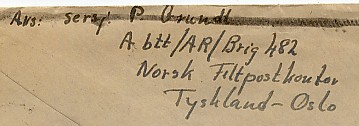 Avs: sersj. P Grundt
A btt/AR/Brig 482
Norsk Feltpostkontor
Tyskland-Oslo